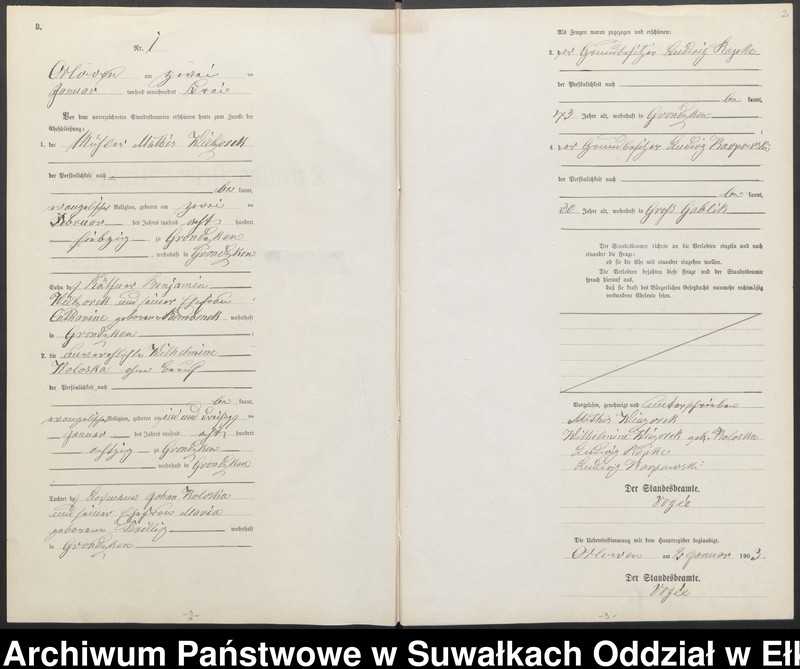 B.
Nr. 1
Orlowen am zwei ten
Januar tausend neunhundert drei
Vor dem unterzeichneten Standesbeamten erschienen heute zum Zwecke der
Eheschließung:
1. der Müller Mathis Wiezorek
der Persönlichkeit nach
be kannt,
evangelischer Religion, geboren am zwei ten
Februar des Jahres tausend acht hundert
siebzig in Grondzken
, wohnhaft in Grondzken
Sohn des Käthner Benjamin
Wiezorek und seiner Ehefrau
Catharine geborene Bembenek wohnhaft
in Grondzken ;
2. die unverehelichte Wilhelmine
Koloska ohne Beruf
der Persönlichkeit nach
be kannt,
evangelischer Religion, geboren am ein und dreißig ten
Januar des Jahres tausend acht hundert
achtzig in Grondzken
wohnhaft in Grondzken
Tochter des Losmanns Johan Koloska
und seiner Ehefrau Maria
geborene wohnhaft
in Grondzken
-2-
2
Als Zeugen waren zugezogen und erschienen:
3. der Grundbesitzer Ludwig
der Persönlichkeit nach
be kannt,
43 Jahre alt, wohnhaft in Grondzken
;
4. der Grundbesitzer Ludwig Karpowski
der Persönlichkeit nach
be kannt,
30 Jahre alt, wohnhaft in Groß Gablick
Der Standesbeamte richtete an die Verlobten einzeln und nach
einander die Frage:
ob sie die Ehe mit einander eingehen wollen.
Die Verlobten bejahten diese Frage und der Standesbeamte
sprach hierauf aus,
daß sie kraft des Bürgerlichen Gesetzbuchs nunmehr rechtmäßig
verbundene Eheleute seien.
Vorgelesen, genehmigt und unterschrieben
Mathis Wiezorek
Wilhelmine Wiezorek geb. Koloska
Ludwig
Ludwig Karpowski
Der Standesbeamte.
Die Uebereinstimmung mit dem Hauptregister beglaubigt.
Orlowen am 2 Januar 1903.
Der Standesbeamte.
-3-
Archiwum Państwowe w Suwałkach Oddział w Eł